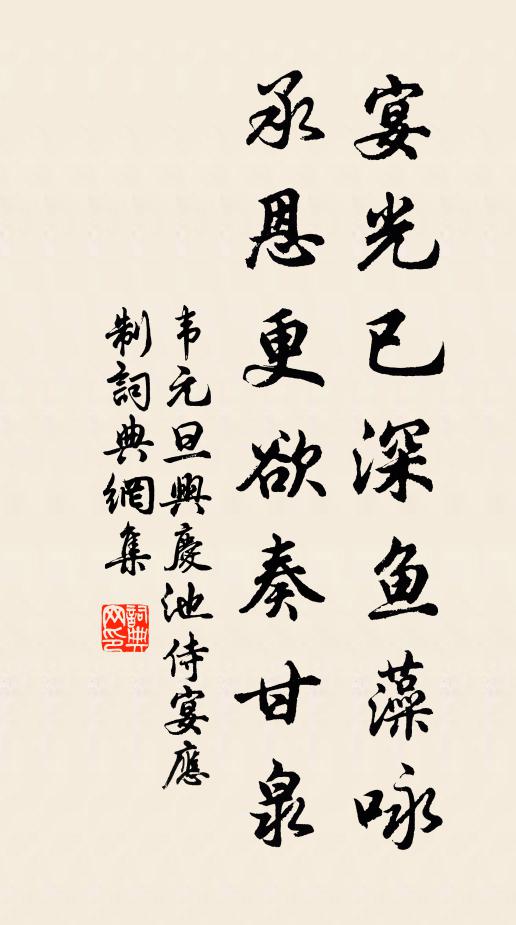 宴光已深鱼藻咏
承恩更欲奏甘泉
韦元旦興慶池侍宴應
制詞典網集
詞典網印